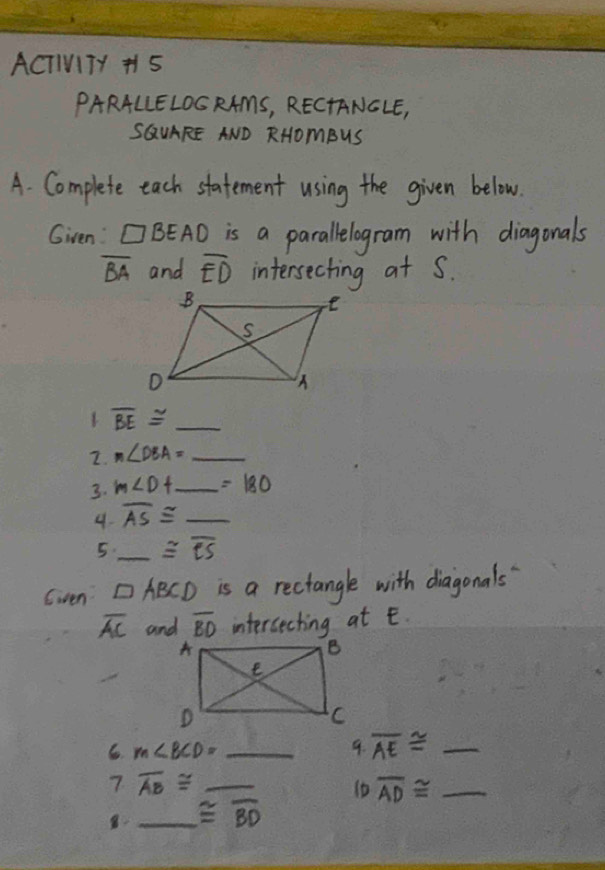 ACTIVITY # 5
PARALLELOGRAMS, RECTANGLE,
SQUARE AND RHOMBUS
A- Complete each statement using the given below.
Given: □ BEAD is a parallelogram with diagonals
B̅A̅ and E̅D̅ intersecting at S.
B E
S
D A
1 B̅E̅ ≅ ___
2. m∠DBA = ___
3. m∠D + ___ = 180
4. A̅S̅ ≅ ___
5. ___ ≅ E̅S̅
Given: □ ABCD is a rectangle with diagonals
A̅C̅ and B̅D̅ intersecting at E.
A B
E
D C
6. m∠BCD = ___ 9. A̅E̅ ≅ ___
7. A̅B̅ ≅ ___ 10 A̅D̅ ≅ ___
8. ___ ≅ B̅D̅